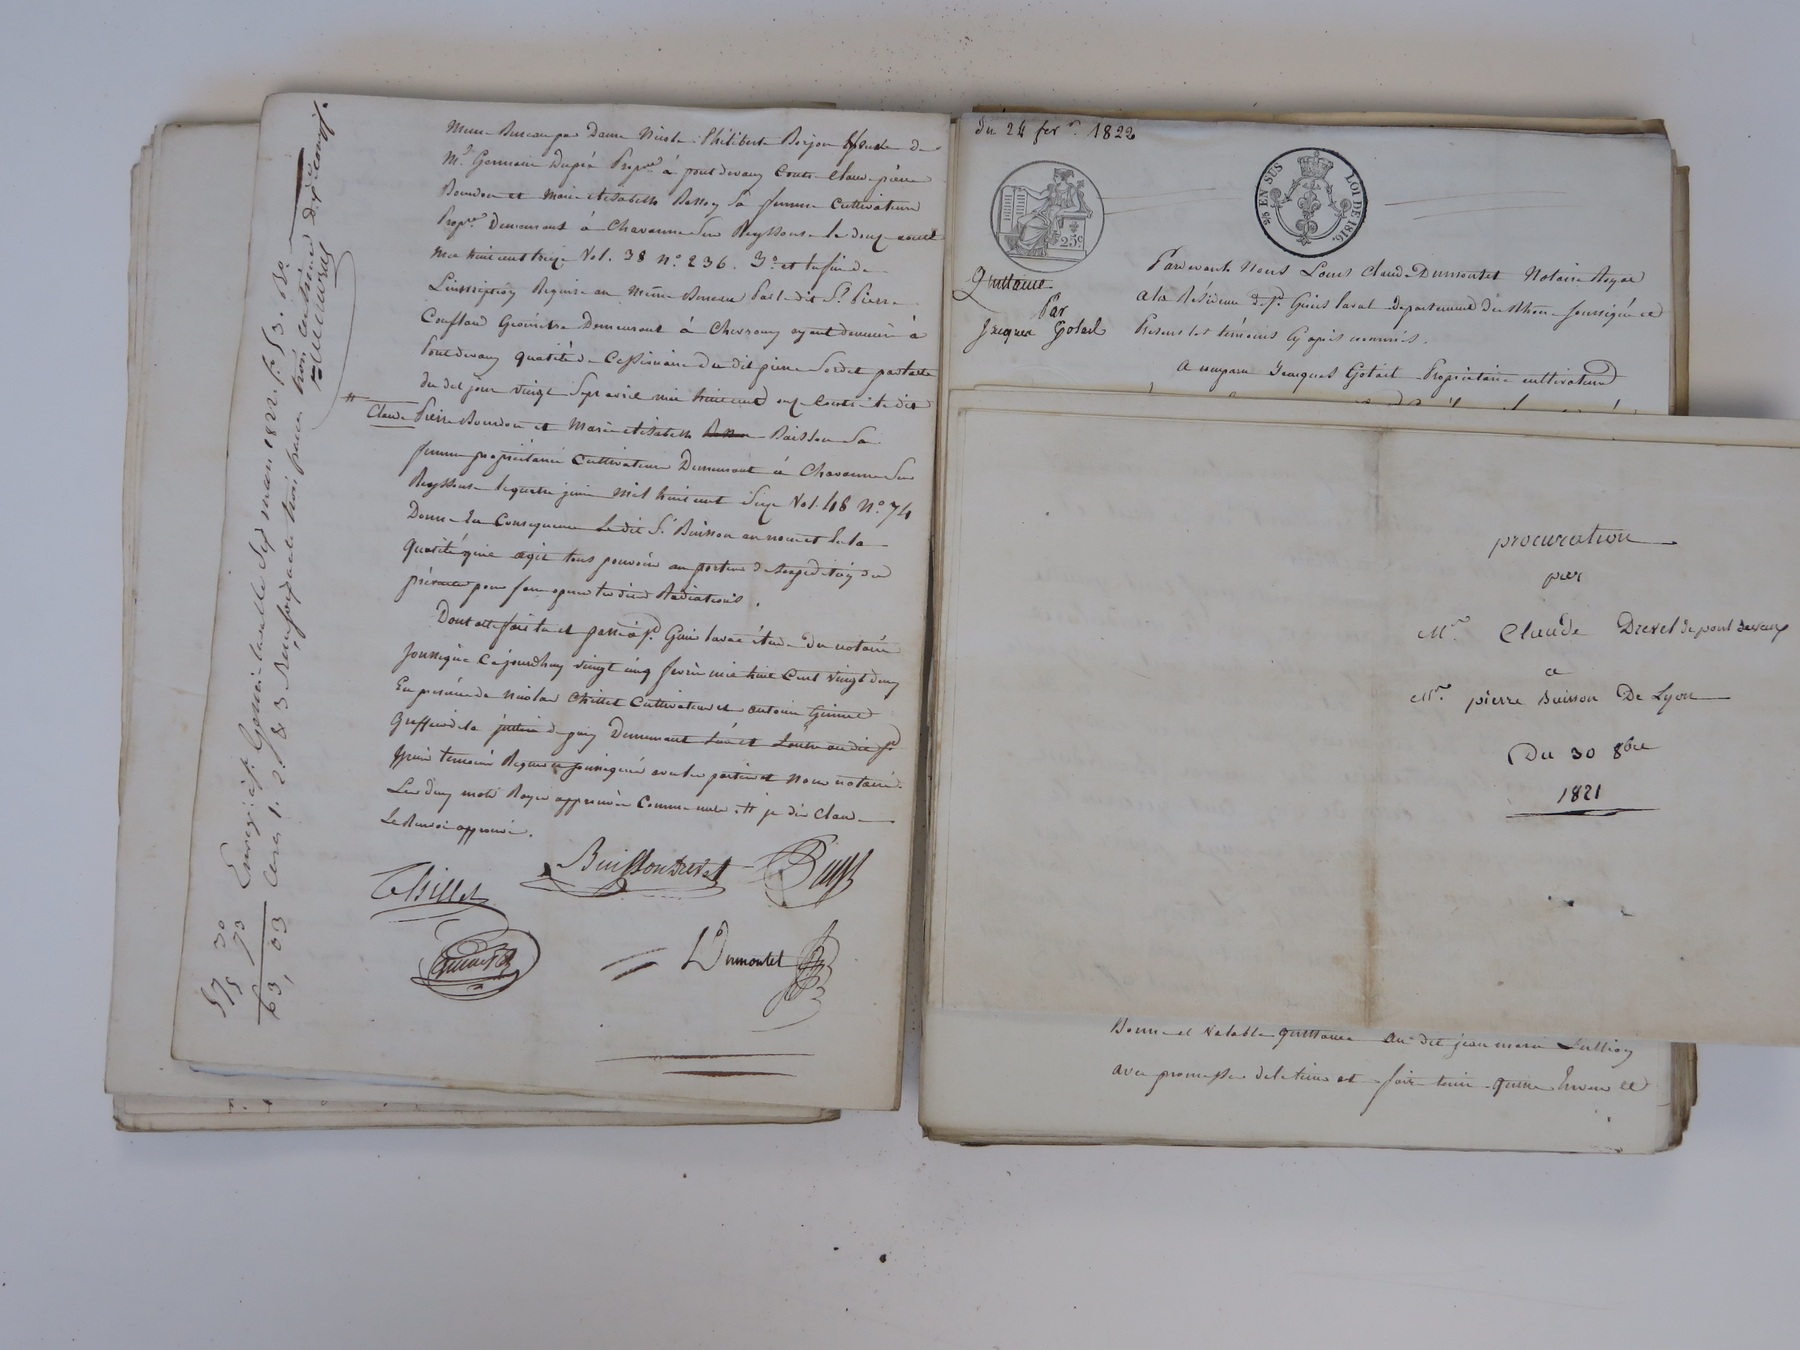 Meme Bureau par Dame Nicole Philiberte Borjon Epouse de
Mr Germain Dupré Propre à pont de vaux Contre Claude pierre
Bourdon et Marie elisabeth sa femme Cultivateurs
Propres Demeurant à Chavanne Sur Reyssouse le deux aoust
Mil huit cent treize Vol. 38 N° 236. 3° et enfin de
L'inscription Requise au Même Bureau Par le dit Sr Pierre
Géomètre Demeurant à ayant demeuré à
Pont de vaux qualité de Cessionnaire du dit pierre Sordet par acte
du dit jour vingt Sept avril mil huit cent onze Contre le dit
# Claude Pierre Bourdon et Marie elisabeth Buisson Sa
femme propriétaires Cultivateurs Demeurant à Chavanne Sur
Reyssouse le quatre juin Mil huit cent Seize Vol. 48 N° 74
Donne En Consequence le dit Sr Buisson au nom et en la
Qualité qu'il agit tous pouvoirs au porteur de l'expedition des
présentes pour faire operer les dites Radiations.
Dont acte fait lu et passé à St Genis laval étude du notaire
soussigné Cejourdhuy vingt cinq fevrier mil huit Cent vingt deux
En présence de Nicolas Chillet Cultivateur et antoine
Greffier de la justice de paix Demeurant tous deux au dit St
Genis temoins Requis et soussignés avec les parties et Nous notaire.
Les deux mots Rayés approuvés Comme nuls # je dis Claude
Le Renvoi approuvé.
Chillet
Buisson Drevet
L Dumontet
Enregistré à St Genis laval le Sept mars 1822. fo 53. Ro
Cases 1. 2. & 3 Reçu soixante trois francs trois centimes Dixe compris.
57 30
5 73
63, 03
du 24 fer. 1822
25c
26 EN SUS
LOI DE 1816.
Quittance
Par
Jacques Gotail
Pardevant Nous Louis Claude Dumontet Notaire Royal
à la Résidence de St Genis laval departement du Rhone soussigné et
Presens les témoins Cy après nommés.
A comparu Jacques Gotail Propriétaire cultivateur
procuration
par
Mr. Claude Drevet de pont de vaux
a
Mr. pierre Buisson De Lyon
Du 30 8bre
1821
Bonne et valable quittance au dit jean marie
avec promesse de le tenir et faire tenir quitte Envers et